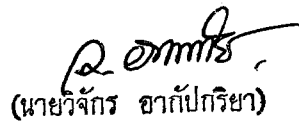 (นายวิจักร อากัปกริยา)